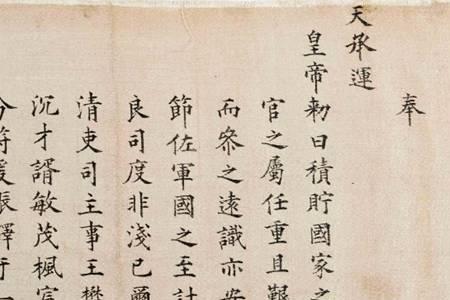 奉
天承運
皇帝勅曰積貯國家之
官之屬任重且艱
而叅之遠識亦安
節佐軍國之至計
良司度非淺已爾
清吏司主事王懋
沉才諝敏茂楓宸
今